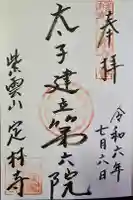 奉拝
令和六年
七月六日
太子建立第六院
紫雲山 定林寺